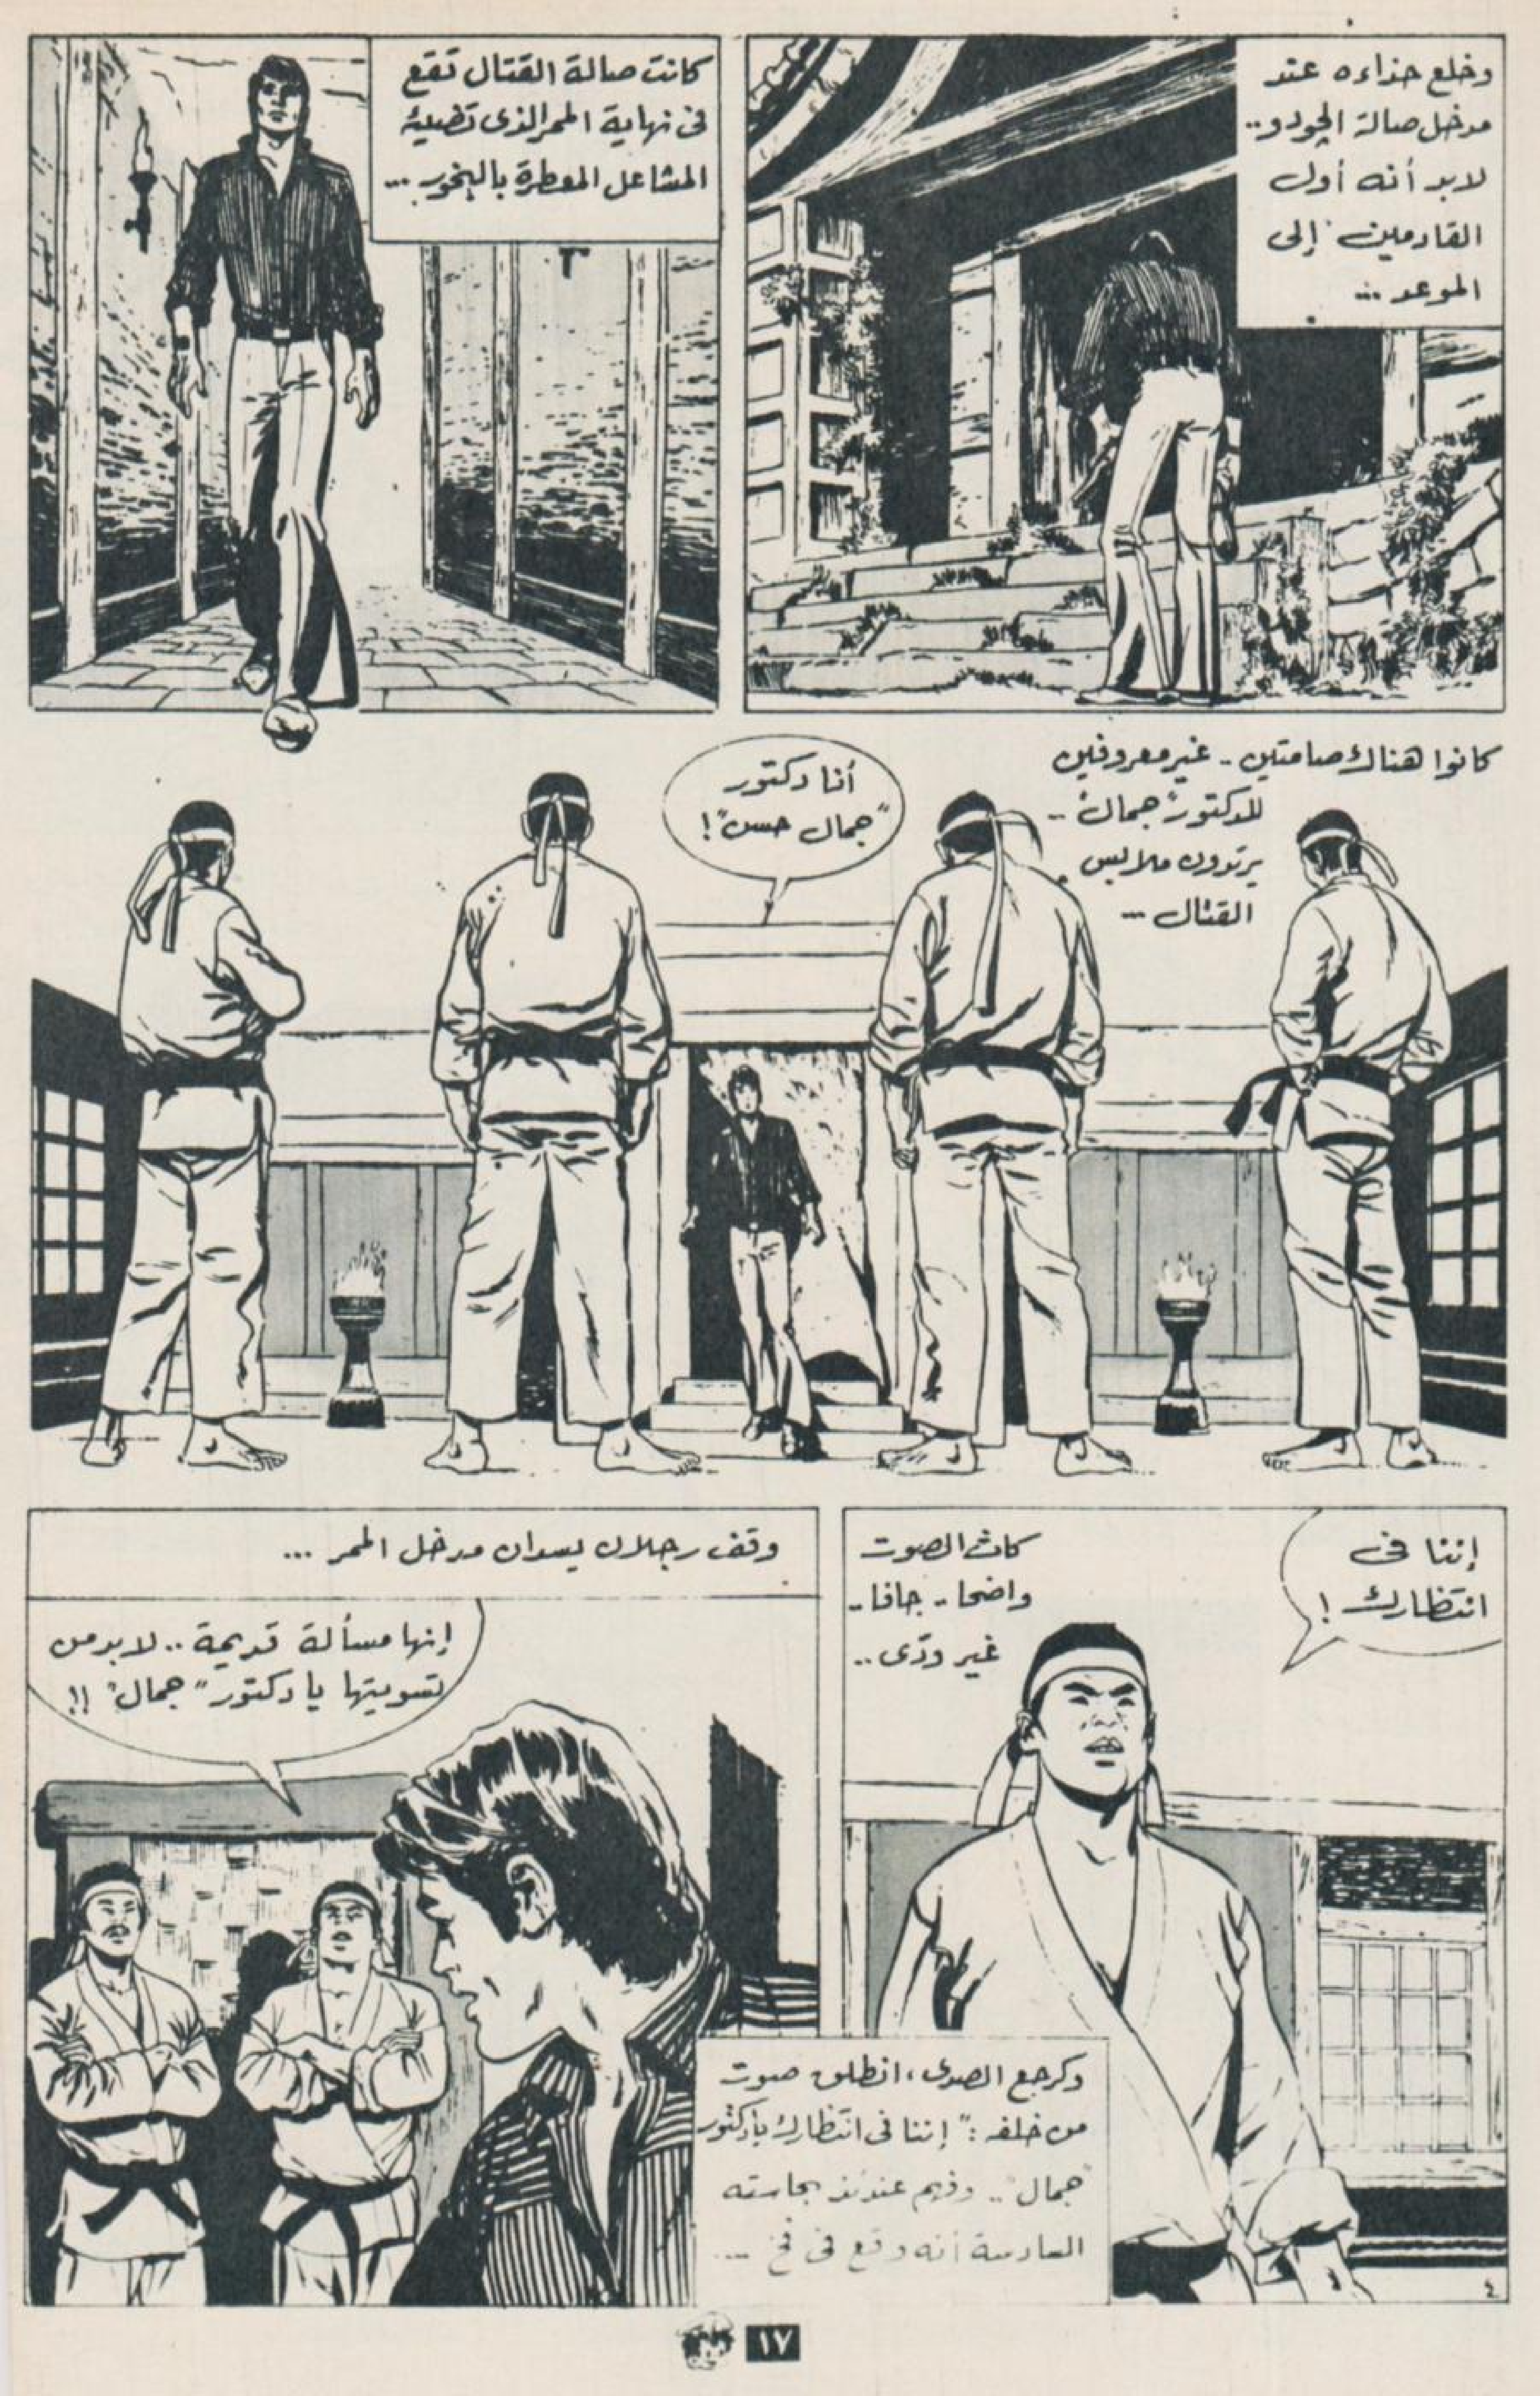 وخلع حذاءه عند
مدخل صالة الجودو..
لابد أنه أول
القادمين إلى
الموعد ...
كانت صالة القتال تقع
فى نهاية الممر الذى تضيئه
المشاعل المعطرة بالبخور ...
كانوا هناك صامتين - غير معروفين
للدكتور "جمال" --
يرتدون ملابس
القتال ---
أنا دكتور
"جمال حسن"!
إننا فى
انتظارك !
كان الصوت
واضحا .. جافا ..
غير ودّى ..
وقف رجلان يسدان مدخل الممر ...
إنها مسألة قديمة .. لابد من
تسويتها يا دكتور "جمال" !!
وكرجع الصدى، انطلق صوت
من خلفه : "إننا فى انتظارك يا دكتور
جمال" .. وفهم عندئذ بحاسته
السادسة أنه وقع فى فخ ...
٤
١٧